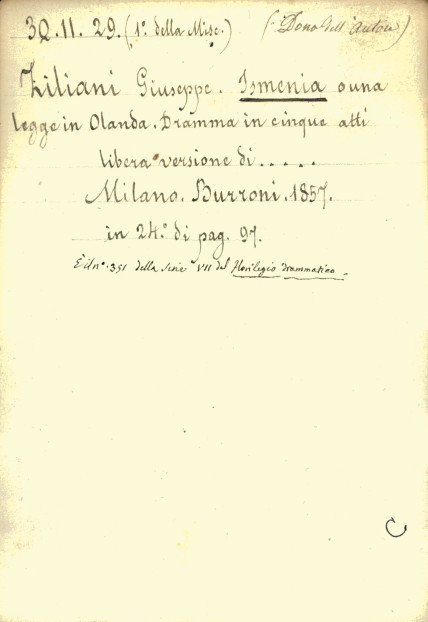 30.11.29. (1º della Misc.) (Dono dell'Autore)
Ziliani Giuseppe. Ismenia o una
legge in Olanda. Dramma in cinque atti
libera versione di.....
Milano. Burroni. 1857.
in 24.º di pag. 97.
È il nº. 351 della Serie VII del florilegio drammatico.
C